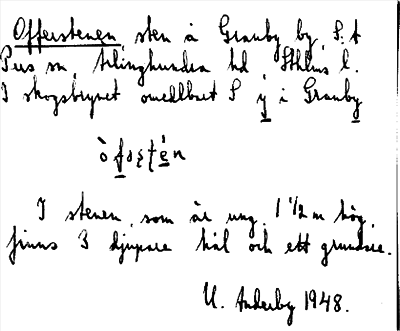 Offerstenen, sten å Granby by, S:t
Pers sn, Ärlinghundra hd, Sthlms l.
I skogsbrynet omedelbart S y i Granby
ò fǫʂtén
I stenen, som är ung. 1 ½ m hög,
finns 3 djupare hål och ett grundare.
U. Anderby 1948.